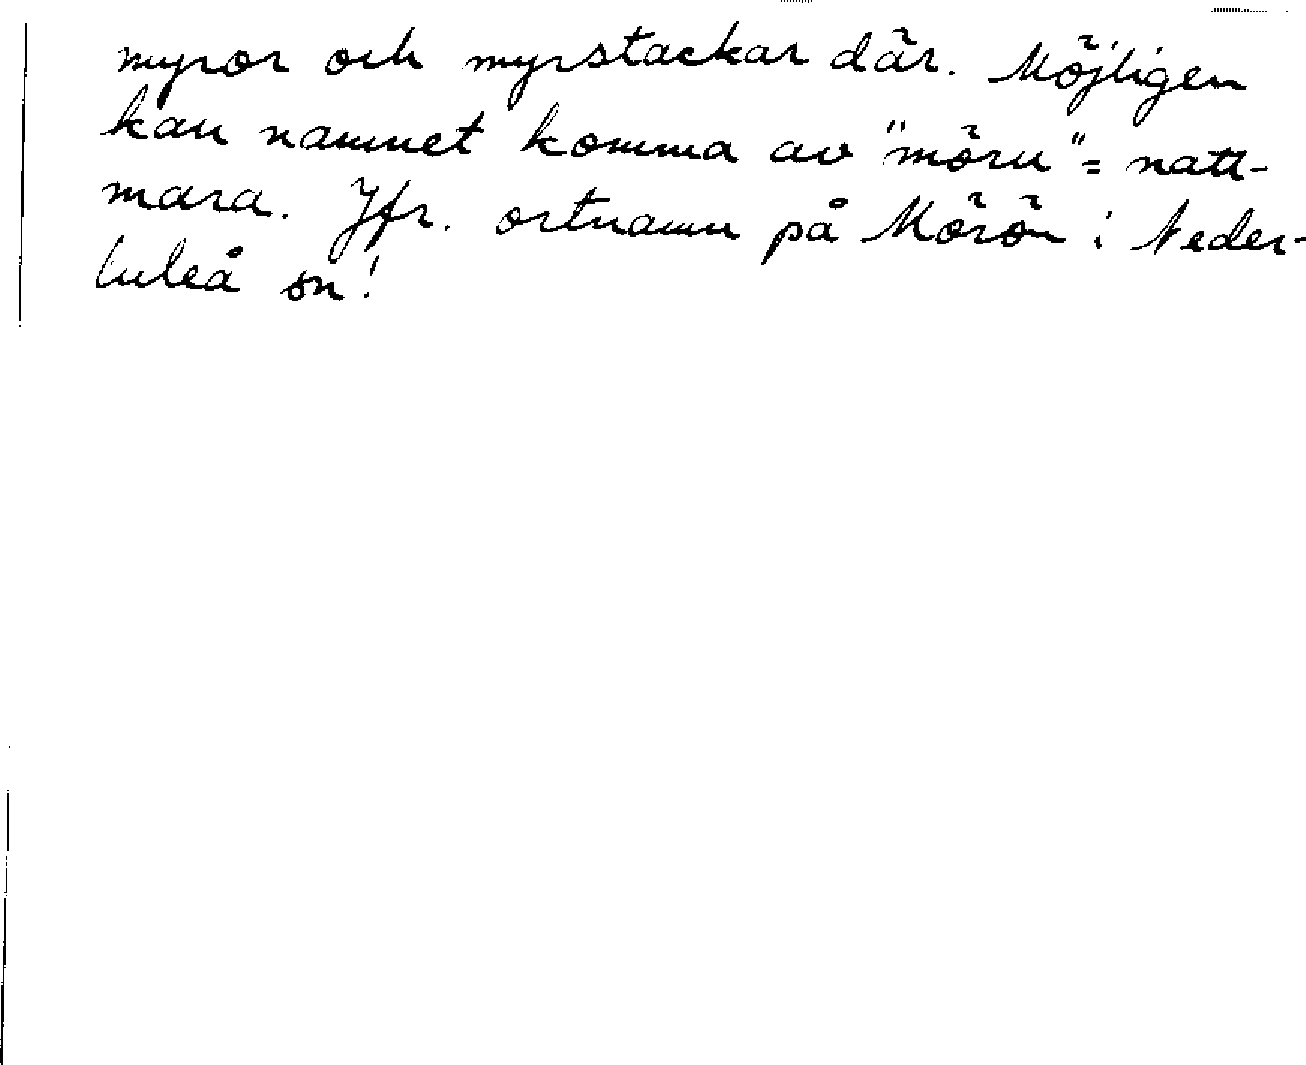 myror och myrstackar där. Möjligen
kan namnet komma av "möru" = natt-
mara. Jfr. ortnamn på Mörön i Neder-
luleå sn!